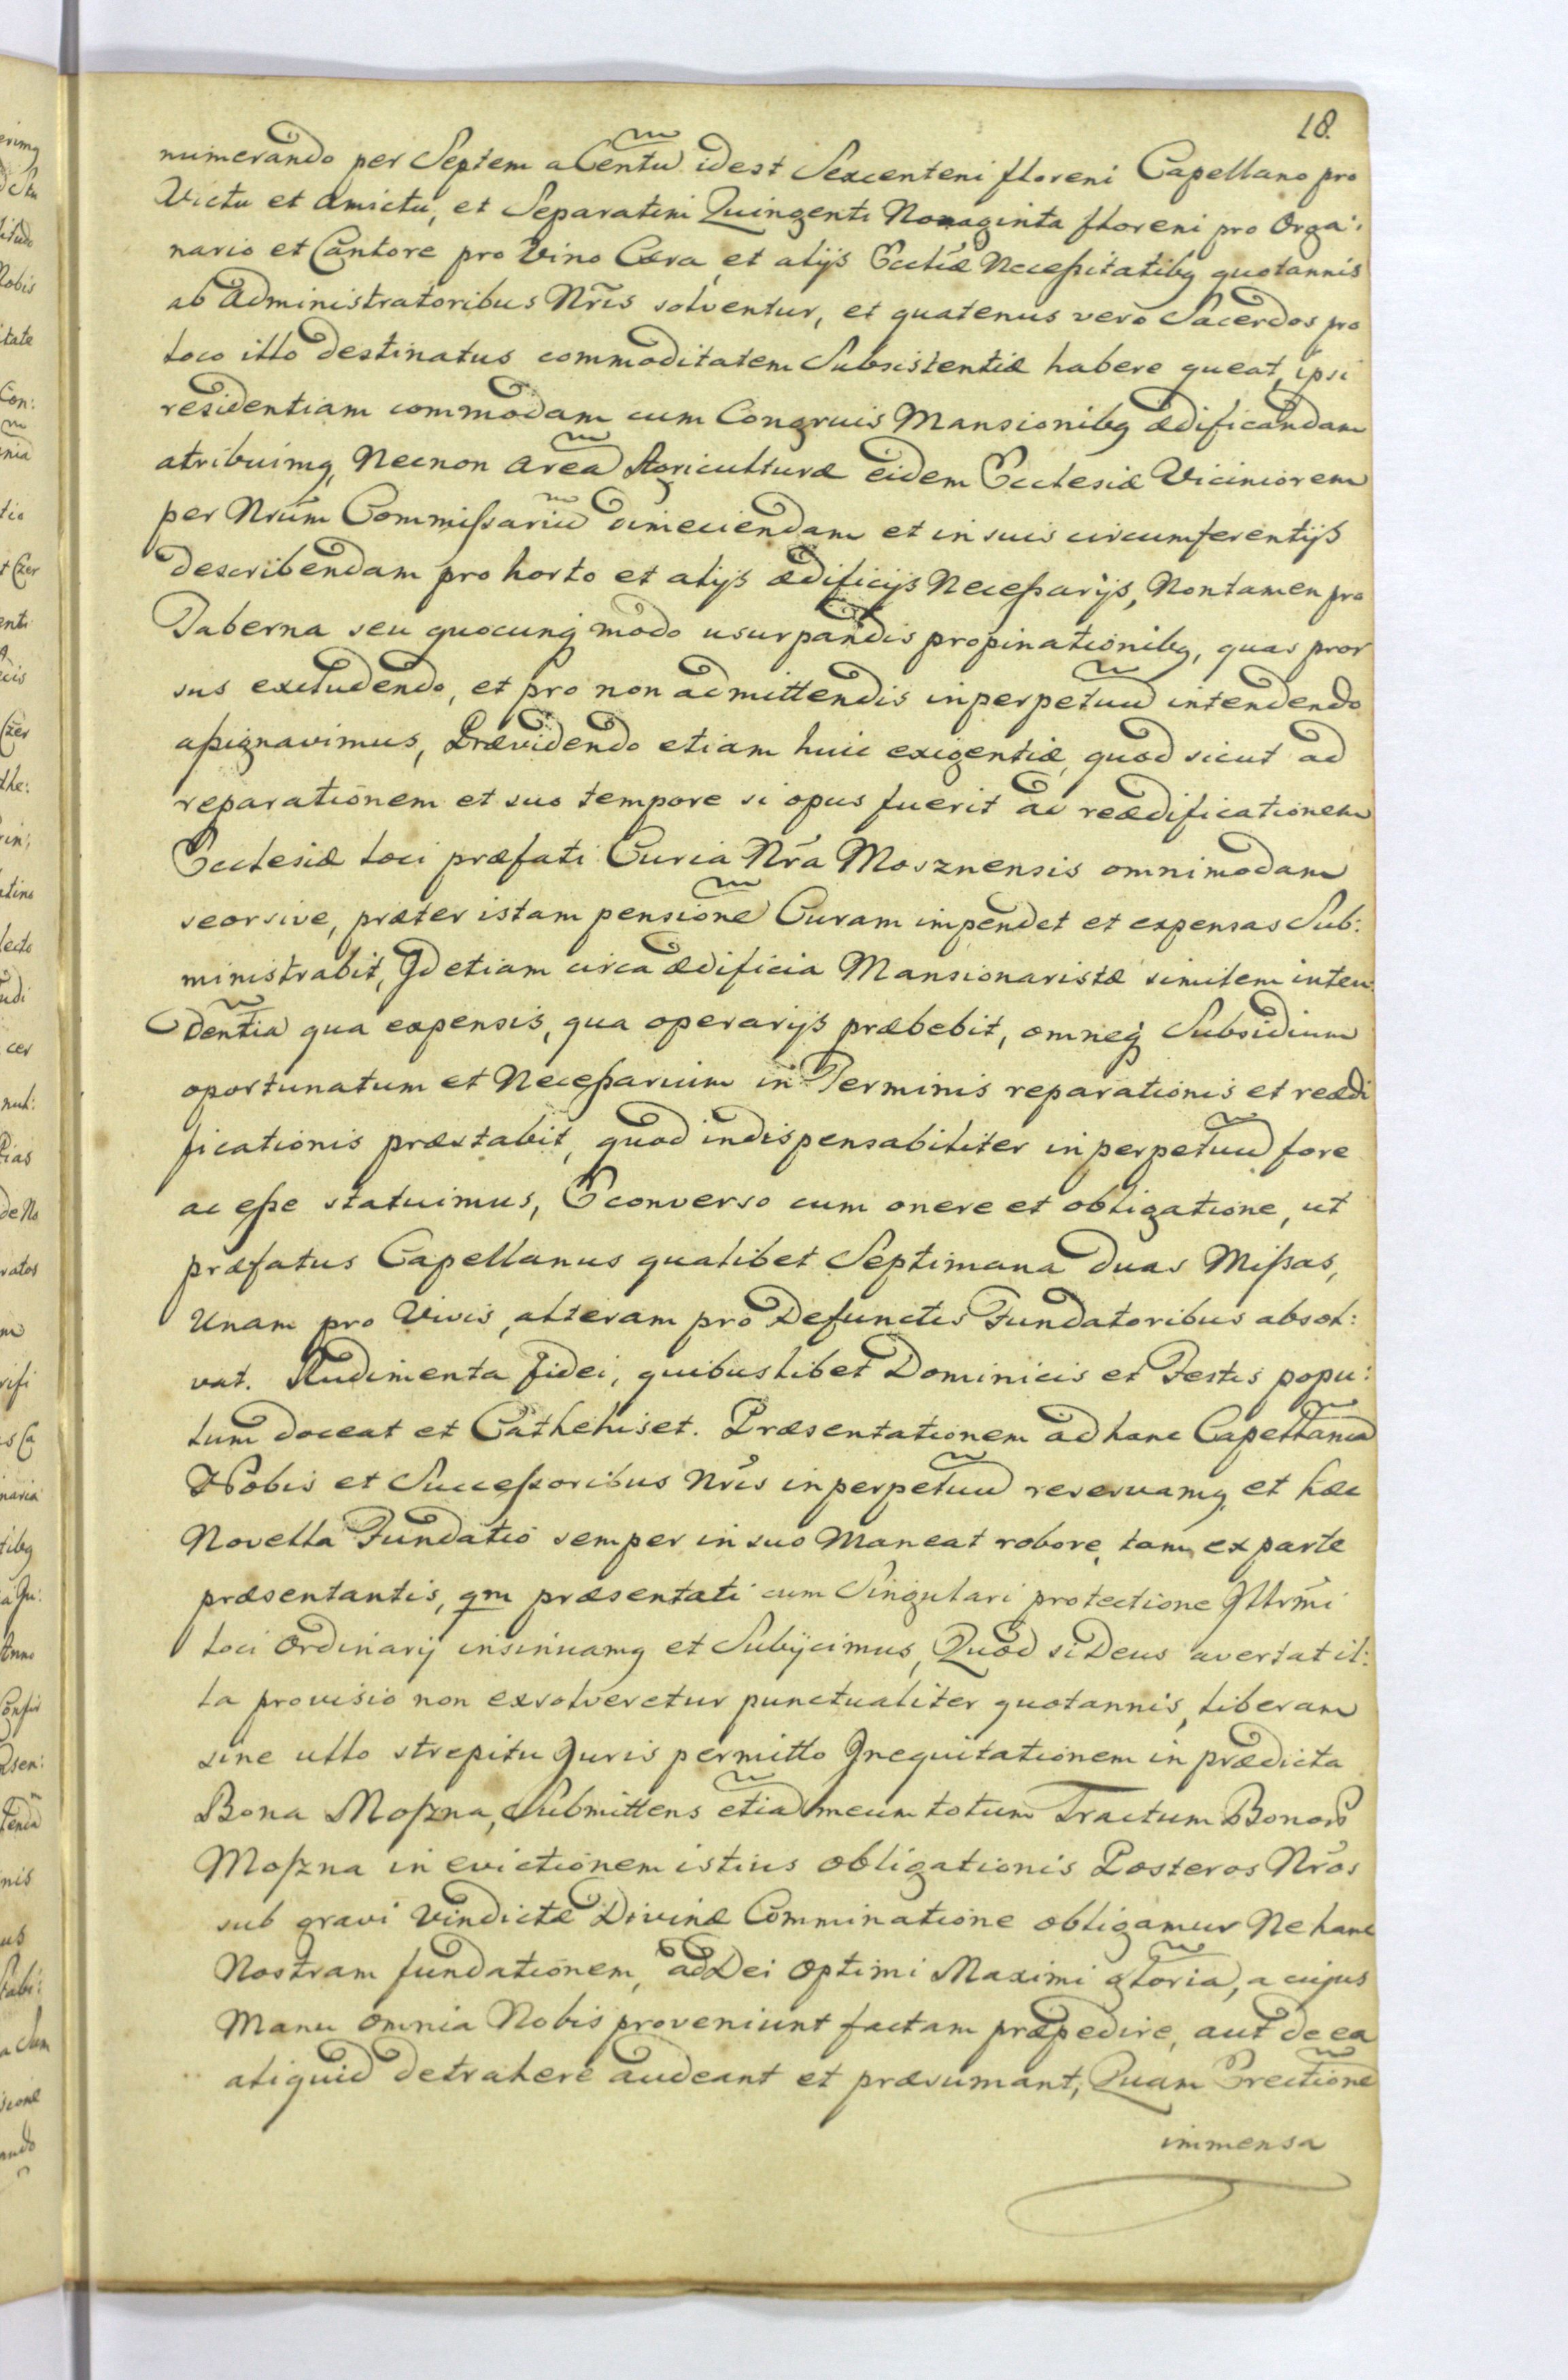 18.
numerando per Septem a Centu͠ idest Sexcenteni floreni Capellano pro
Victu et amictu, et Separatim Quingenti Nonaginta floreni pro Orga:
nario et Cantore pro Vino Cera, et alijs Eccliæ Necessitatibq quotannis
ab Administratoribus Nr̃is solventur, et quatenus vero Sacerdos pro
loco illo destinatus commoditatem Subsistentiæ habere queat, ipsi
residentiam commodam cum Congruis Mansionibq ædificandam
atribuimq, Necnon area͠ Agriculturæ eidem Ecclesiæ Viciniorem
per Nrum Commissariu͠ dimeciendam et in suis circumferentijs
describendam pro horto et alijs ædificijs Necessarijs, Nontamen pro
Taberna seu quocunq modo usurpandis propinationibq, quas pror
sus excludendo, et pro non admittendis inperpetuu͠ intendendo
assignavimus, Prævidendo etiam huic exigentiæ, quod sicut ad
reparationem et suo tempore si opus fuerit ad reædificationem
Ecclesiæ loci præfati Curia Nr̃a Mosznensis omnimodam
seorsive, præter istam pensione͠ Curam impendet et expensas Sub:
ministrabit, Id etiam circa ædificia Mansionaristæ similem inten
dentia͠ qua expensis, qua operarijs præbebit, omneq Subsidium
oportunatum et Necessarium in Terminis reparationis et reædi
ficationis præstabit, quod indispensabiliter inperpetuu͠ fore
ac esse statuimus, Econverso cum onere et obligatione, ut
præfatus Capellanus qualibet Septimana duas Missas,
Unam pro Vivis, alteram pro Defunctis Fundatoribus absol:
vat. Rudimenta fidei, quibuslibet Dominicis et Festis popu:
lum doceat et Cathehiset. Præsentationem ad hanc Capellania͠
Nobis et Successoribus Nr̃is inperpetuu͠ reservamq, et hæc
Novella Fundatio semper in suo Maneat robore, tam ex parte
præsentantis, qm præsentati cum Singulari protectione Illrm̃i
loci Ordinarij insinuamq et Subijcimus, Quod si Deus avertat il:
la provisio non exsolveretur punctualiter quotannis, liberam
sine ullo strepitu Juris permitto Inequitationem in prædicta
Bona Moszna, Submittens etia͠ meum totum Tractum Bonor
Moszna in evictionem istius obligationis Posteros Nr̃os
sub gravi Vindictæ Divinæ Comminatione obligamur Ne hanc
Nostram fundationem, ad Dei Optimi Maximi gloria͠, a cujus
Manu omnia Nobis proveniunt factam præpedire, aut de ea
aliquid detrahere audeant et præsumant, Quam Erectione͠
immensa